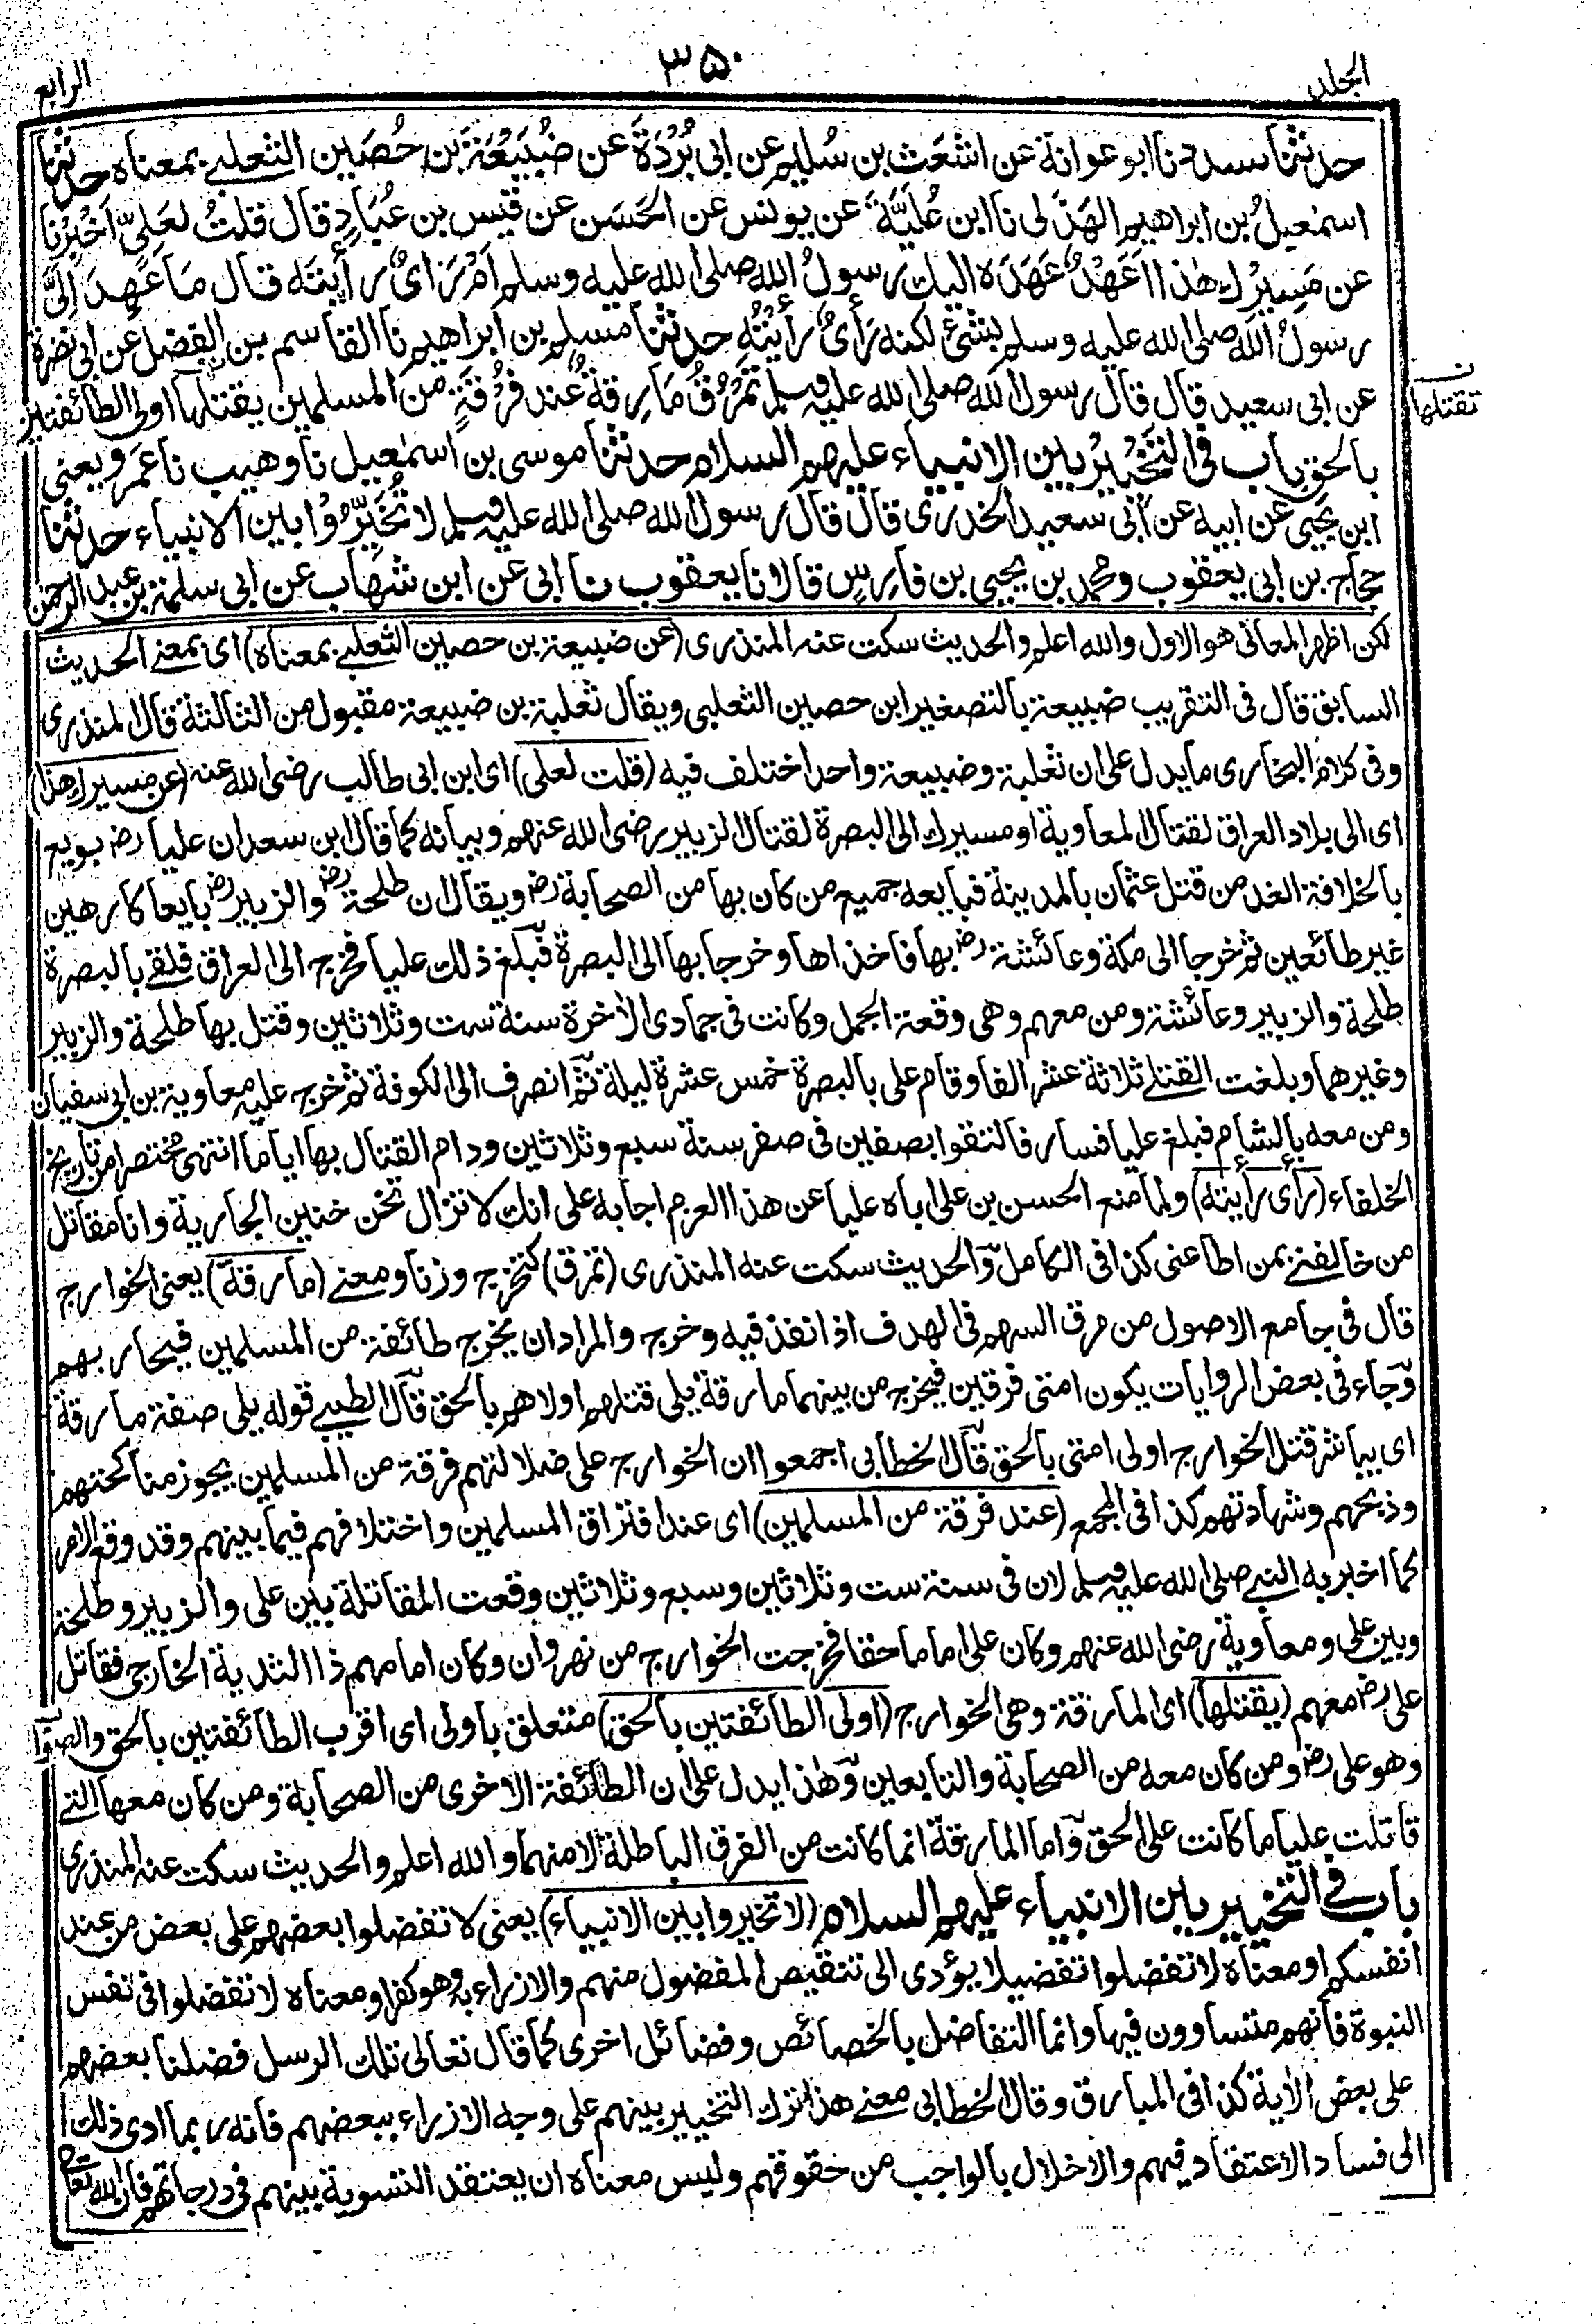 المجلد
٣٥٠
الرابع
حدثنا مسدد نا ابو عوانة عن اشعث بن سُليم عن ابى بُرْدَةَ عن ضُبَيْعَةَ بن حُصَين الثعلبى بمعناه حدثنا
اسمٰعيلُ بن ابراهيم الهذلى نا ابن عُلَيَّةَ عن يونس عن الحَسَن عن قيس بن عُبَادٍ قال قلتُ لعَلِىّ اَخْبِرْنا
عن مَسِيْرِك هٰذا اَعَهْدٌ عَهَدَه اليك رسولُ الله صلى الله عليه وسلم اَمْ رَأىٌ رأيتَه قال مَا عَهِدَ اِلَىَّ
رسولُ الله صلى الله عليه وسلم بشئ لكنه رَأىٌ رأيتُه حدثنا مسلم بن ابراهيم نا القاسم بن الفضل عن ابى نضرة
عن ابى سعيد قال قال رسول الله صلى الله عليه وسلم تَمْرُقُ مَارِقةٌ عند فُرْقَةٍ من المسلمين يقتلها اولى الطائفتين
ن
تقتلها
بالحق باب فى التَّخْيِيْرِ بين الانبياء عليهم السلام حدثنا موسى بن اسمٰعيل نا وهيب نا عَمرو يعنى
ابن يَحيى عن ابيه عن ابى سعيد الخدرى قال قال رسول الله صلى الله عليه وسلم لا تُخَيِّرُوْا بين الانبياء حدثنا
حجاج بن ابى يعقوب ومحمد بن يحيى بن فارِسٍ قالا نا يعقوب نا ابى عن ابن شهاب عن ابى سلمة بن عبد الرحمن
لكن اظهر المعانى هو الاول والله اعلم والحديث سكت عنه المنذرى (عن ضبيعة بن حصين الثعلبى بمعناه) اى بمعنى الحديث
السابق قال فى التقريب ضبيعة بالتصغير ابن حصين الثعلبى ويقال ثعلبة بن ضبيعة مقبول من الثالثة قال المنذرى
وفى كلام البخارى ما يدل على ان ثعلبة وضبيعة واحد اختلف فيه (قلت لعلى) اى ابن ابى طالب رضى الله عنه (عن مسيرك هذا)
اى الى بلاد العراق لقتال المعاوية او مسيرك الى البصرة لقتال الزبير رضى الله عنهم وبيانه كما قال ابن سعد ان عليا رض بويع
بالخلافة الغد من قتل عثمان بالمدينة فبايعه جميع من كان بها من الصحابة رض ويقال ان طلحة رض والزبير رض بايعا كارهين
غير طائعين ثم خرجا الى مكة وعائشة رض بها فاخذاها وخرجا بها الى البصرة فبلغ ذلك عليا فخرج الى العراق فلقى بالبصرة
طلحة والزبير وعائشة ومن معهم وهى وقعة الجمل وكانت فى جمادى الاٰخرة سنة ست وثلاثين وقتل بها طلحة والزبير
وغيرهما وبلغت القتلى ثلاثة عشر الفا وقام على بالبصرة خمس عشرة ليلة ثم انصرف الى الكوفة ثم خرج عليه معاوية بن ابى سفيان
ومن معه بالشام فبلغ عليا فسار فالتقوا بصفين فى صفر سنة سبع وثلاثين ودام القتال بها اياما انتهى مختصرا من تاريخ
الخلفاء (رأى رأيته) ولما منع الحسن بن على اباه عليا عن هذا العزم اجابه على انك لا تزال تحن حنين الجارية وانا مقاتل
من خالفنى بمن اطاعنى كذا فى الكامل والحديث سكت عنه المنذرى (تمرق) كتخرج وزنا ومعنى (مارقة) يعنى الخوارج
قال فى جامع الاصول من مرق السهم فى الهدف اذا نفذ فيه وخرج والمراد ان يخرج طائفة من المسلمين فيحاربهم
وجاء فى بعض الروايات يكون امتى فرقتين فيخرج من بينهما مارقة يلى قتلهم اولاهم بالحق قال الطيبى قوله يلى صفة مارقة
اى يباشر قتل الخوارج اولى امتى بالحق قال الخطابى اجمعوا ان الخوارج على ضلالتهم فرقة من المسلمين يجوز مناكحتهم
وذبحهم وشهادتهم كذا فى المجمع (عند فرقة من المسلمين) اى عند افتراق المسلمين واختلافهم فيما بينهم وقد وقع الامر
كما اخبر به النبى صلى الله عليه وسلم لان فى سنة ست وثلاثين وسبع وثلاثين وقعت المقاتلة بين على والزبير وطلحة
وبين على ومعاوية رضى الله عنهم وكان على اماما حقا فخرجت الخوارج من نهروان وكان امامهم ذا الثدية الخارجى فقاتل
على رض معهم (يقتلها) اى المارقة وهى الخوارج (اولى الطائفتين بالحق) متعلق باولى اى اقرب الطائفتين بالحق والصواب
وهو على رض ومن كان معه من الصحابة والتابعين وهٰذا يدل على ان الطائفة الاخرى من الصحابة ومن كان معها التى
قاتلت عليا ما كانت على الحق واما المارقة انما كانت من الفرق الباطلة لا منهما والله اعلم والحديث سكت عنه المنذرى
باب فى التخيير بين الانبياء عليهم السلام (لا تخيروا بين الانبياء) يعنى لا تفضلوا بعضهم على بعض من عند
انفسكم او معناه لا تفضلوا تفضيلا يؤدى الى تنقيص المفضول منهم والازراء به وهو كفر او معناه لا تفضلوا فى نفس
النبوة فانهم متساوون فيها وانما التفاضل بالخصائص وفضائل اخرى كما قال تعالى تلك الرسل فضلنا بعضهم
على بعض الاٰية كذا فى المبارق وقال الخطابى معنى هذا ترك التخيير بينهم على وجه الازراء ببعضهم فانه ربما ادى ذلك
الى فساد الاعتقاد فيهم والاخلال بالواجب من حقوقهم وليس معناه ان يعتقد التسوية بينهم فى درجاتهم فان الله تعالى